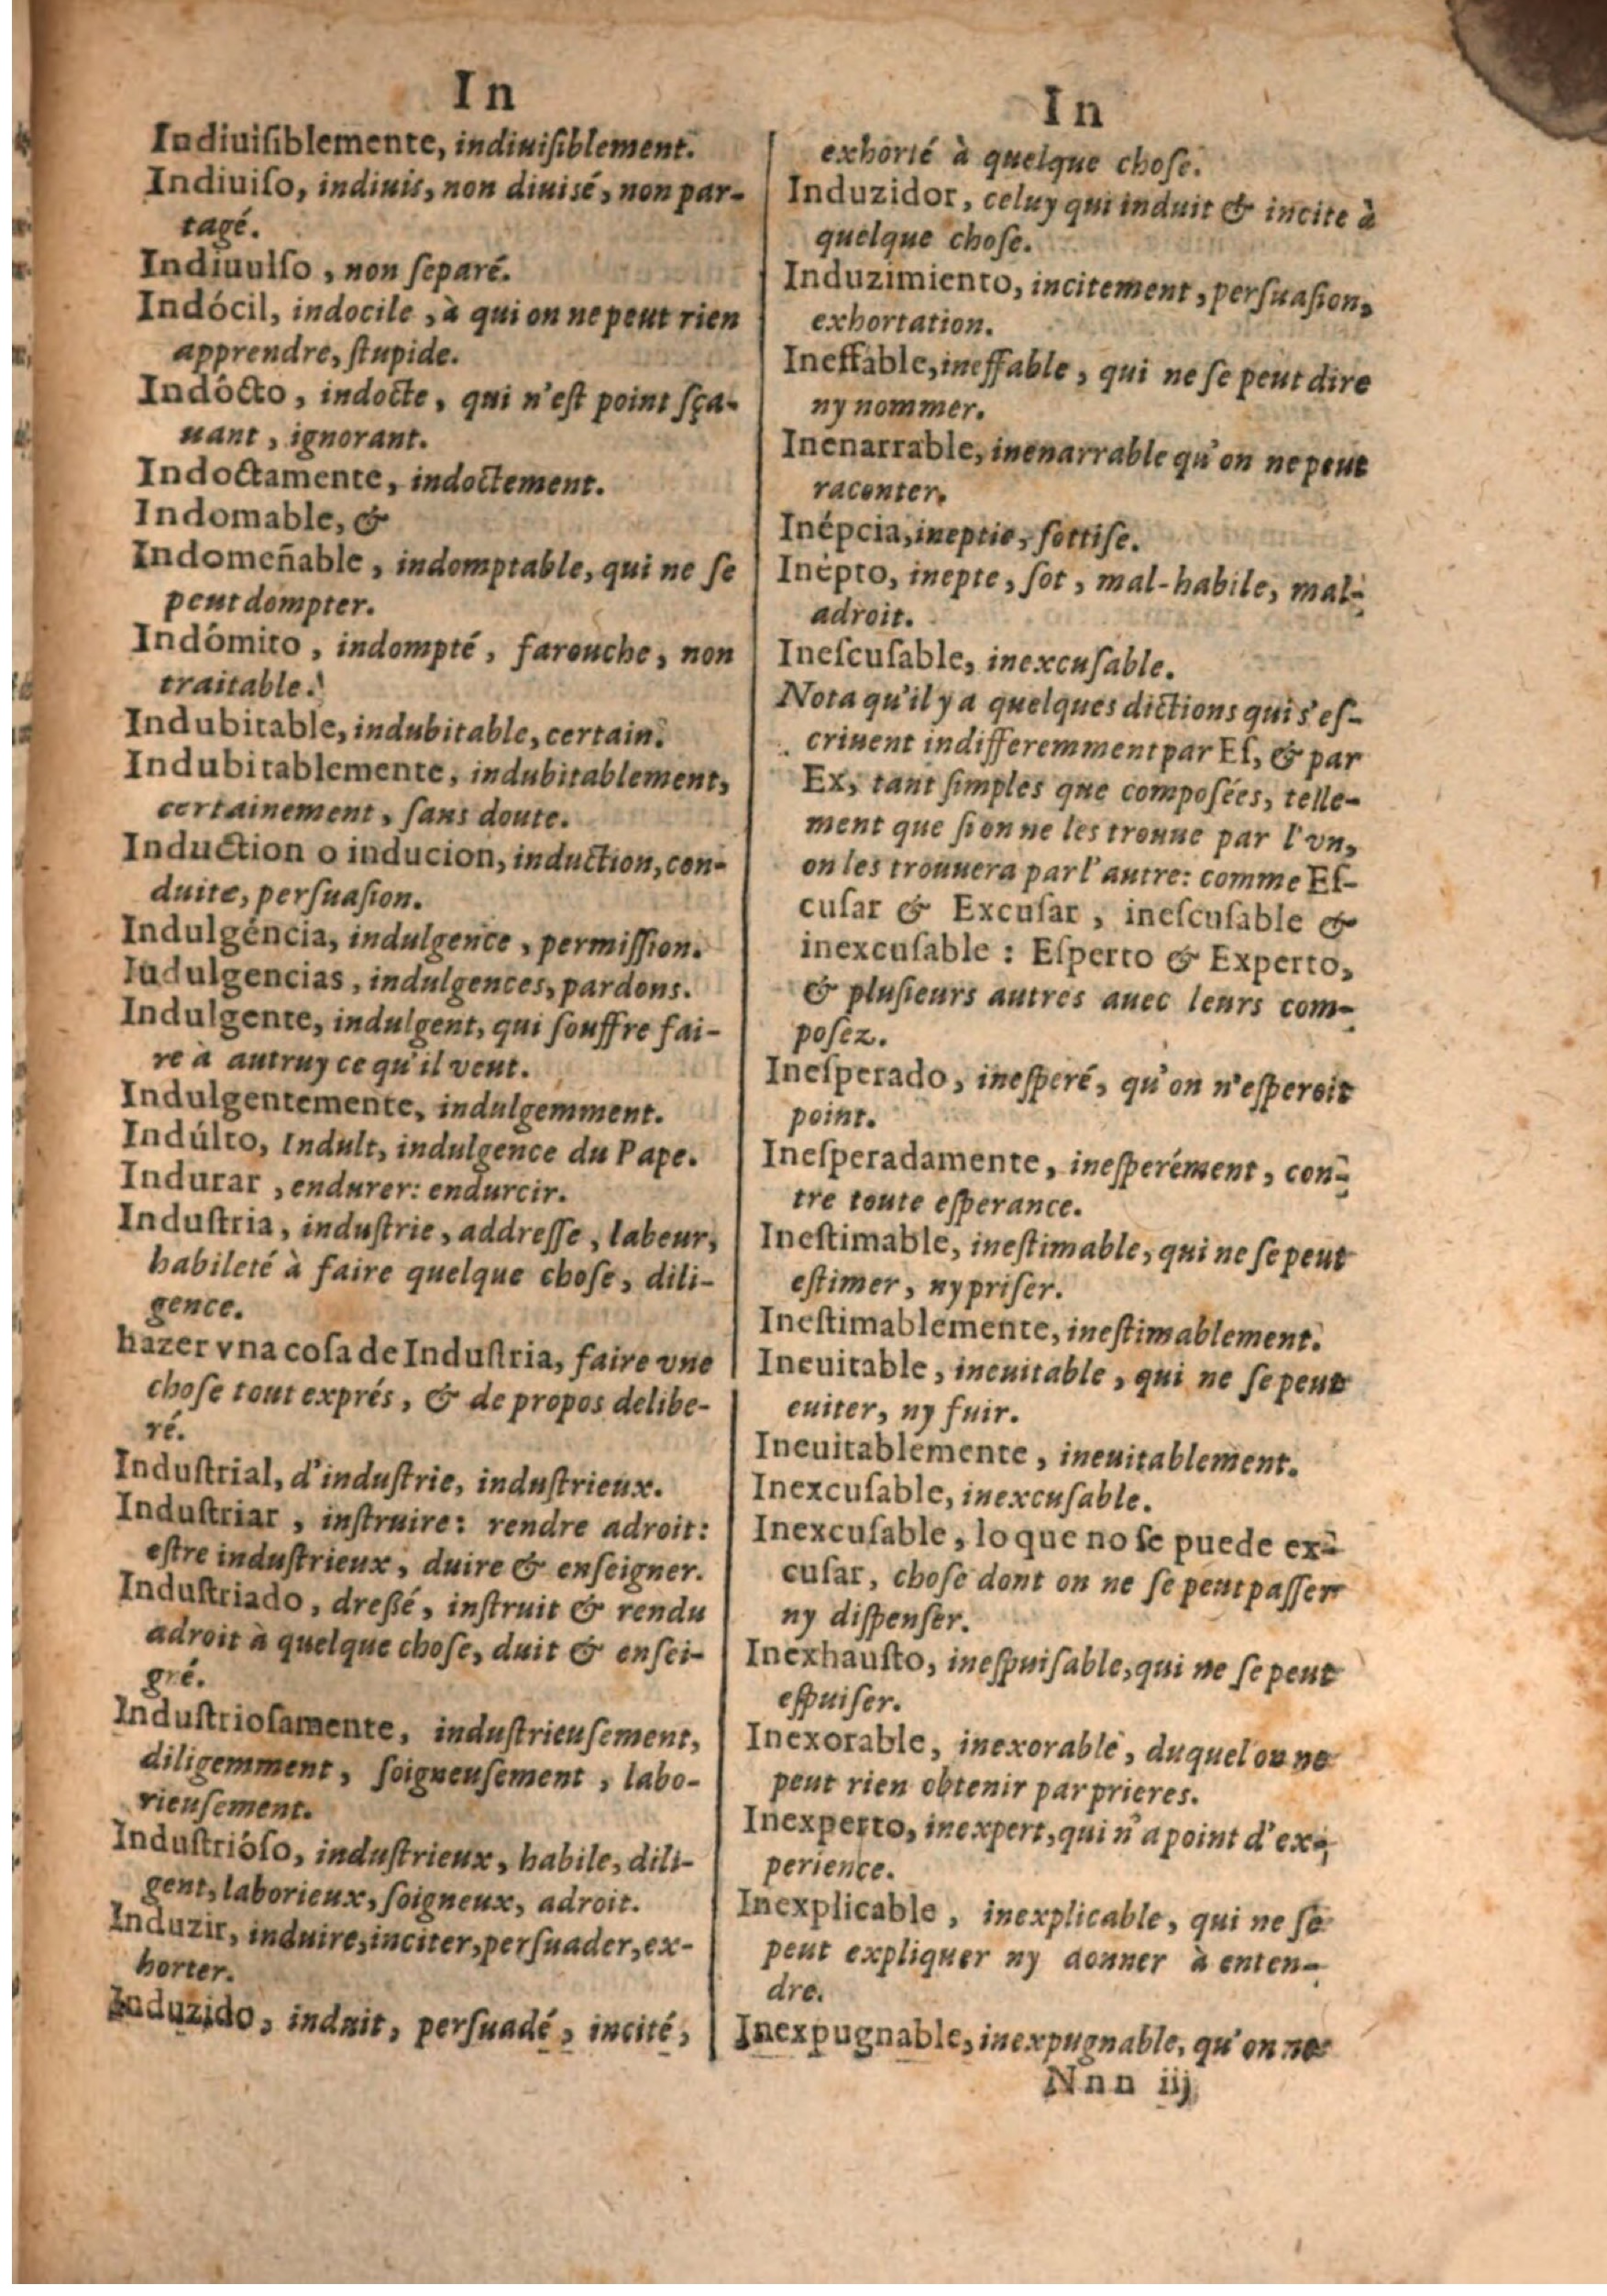 In
Indiuiſiblemente, indiuiſiblement.
Indiuiſo, indiuis, non diuisé, non par-
tagé.
Indiuulſo, non ſeparé.
Indócil, indocile, à qui on ne peut rien
apprendre, ſtupide.
Indócto, indocte, qui n'eſt point ſça-
uant, ignorant.
Indoctamente, indoctement.
Indomable, &
Indomeñable, indomptable, qui ne ſe
peut dompter.
Indómito, indompté, farouche, non
traitable.
Indubitable, indubitable, certain.
Indubitablemente, indubitablement,
certainement, ſans doute.
Induction o inducion, induction, con-
duite, perſuaſion.
Indulgéncia, indulgence, permiſſion.
Iudulgencias, indulgences, pardons.
Indulgente, indulgent, qui ſouffre fai-
re à autruy ce qu'il veut.
Indulgentemente, indulgemment.
Indúlto, Indult, indulgence du Pape.
Indurar, endurer: endurcir.
Induſtria, induſtrie, addreſſe, labeur,
habileté à faire quelque choſe, dili-
gence.
hazer vna coſa de Induſtria, faire vne
choſe tout exprés, & de propos delibe-
ré.
Induſtrial, d'induſtrie, induſtrieux.
Induſtriar, inſtruire: rendre adroit:
eſtre induſtrieux, duire & enſeigner.
Induſtriado, dreßé, inſtruit & rendu
adroit à quelque choſe, duit & enſei-
gré.
Induſtrioſamente, induſtrieuſement,
diligemment, ſoigneuſement, labo-
rieuſement.
Induſtrióſo, induſtrieux, habile, dili-
gent, laborieux, ſoigneux, adroit.
Induzir, induire, inciter, perſuader, ex-
horter.
Induzido, induit, perſuadé, incité,
In
exhorté à quelque choſe.
Induzidor, celuy qui induit & incite à
quelque choſe.
Induzimiento, incitement, perſuaſion,
exhortation.
Ineffable, ineffable, qui ne ſe peut dire
ny nommer.
Inenarrable, inenarrable qu'on ne peut
raconter.
Inépcia, ineptie, ſottiſe.
Inépto, inepte, ſot, mal-habile, mal-
adroit.
Ineſcuſable, inexcuſable.
Nota qu'il y a quelques dictions qui s'eſ-
criuent indifferemment par Eſ, & par
Ex, tant ſimples que composées, telle-
ment que ſi on ne les trouue par l'vn,
on les trouuera par l'autre: comme Eſ-
cuſar & Excuſar, ineſcuſable &
inexcuſable: Eſperto & Experto,
& pluſieurs autres auec leurs com-
poſez.
Ineſperado, ineſperé, qu'on n'eſperoit
point.
Ineſperadamente, ineſperément, con-
tre toute eſperance.
Ineſtimable, ineſtimable, qui ne ſe peut
eſtimer, ny priſer.
Ineſtimablemente, ineſtimablement.
Ineuitable, ineuitable, qui ne ſe peut
euiter, ny fuir.
Ineuitablemente, ineuitablement.
Inexcuſable, inexcuſable.
Inexcuſable, lo que no ſe puede ex-
cuſar, choſe dont on ne ſe peut paſſer
ny diſpenſer.
Inexhauſto, ineſpuiſable, qui ne ſe peut
eſpuiſer.
Inexorable, inexorable, duquel on ne
peut rien obtenir par prieres.
Inexperto, inexpert, qui n'a point d'ex-
perience.
Inexplicable, inexplicable, qui ne ſe
peut expliquer ny donner à enten-
dre.
Inexpugnable, inexpugnable, qu'on ne
Nnn iij